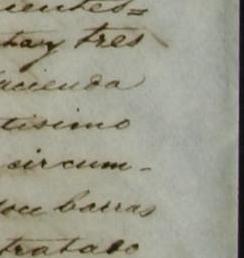 ientes=
ta y tres
acienda
tisimo
circum-
doce barras
tratado